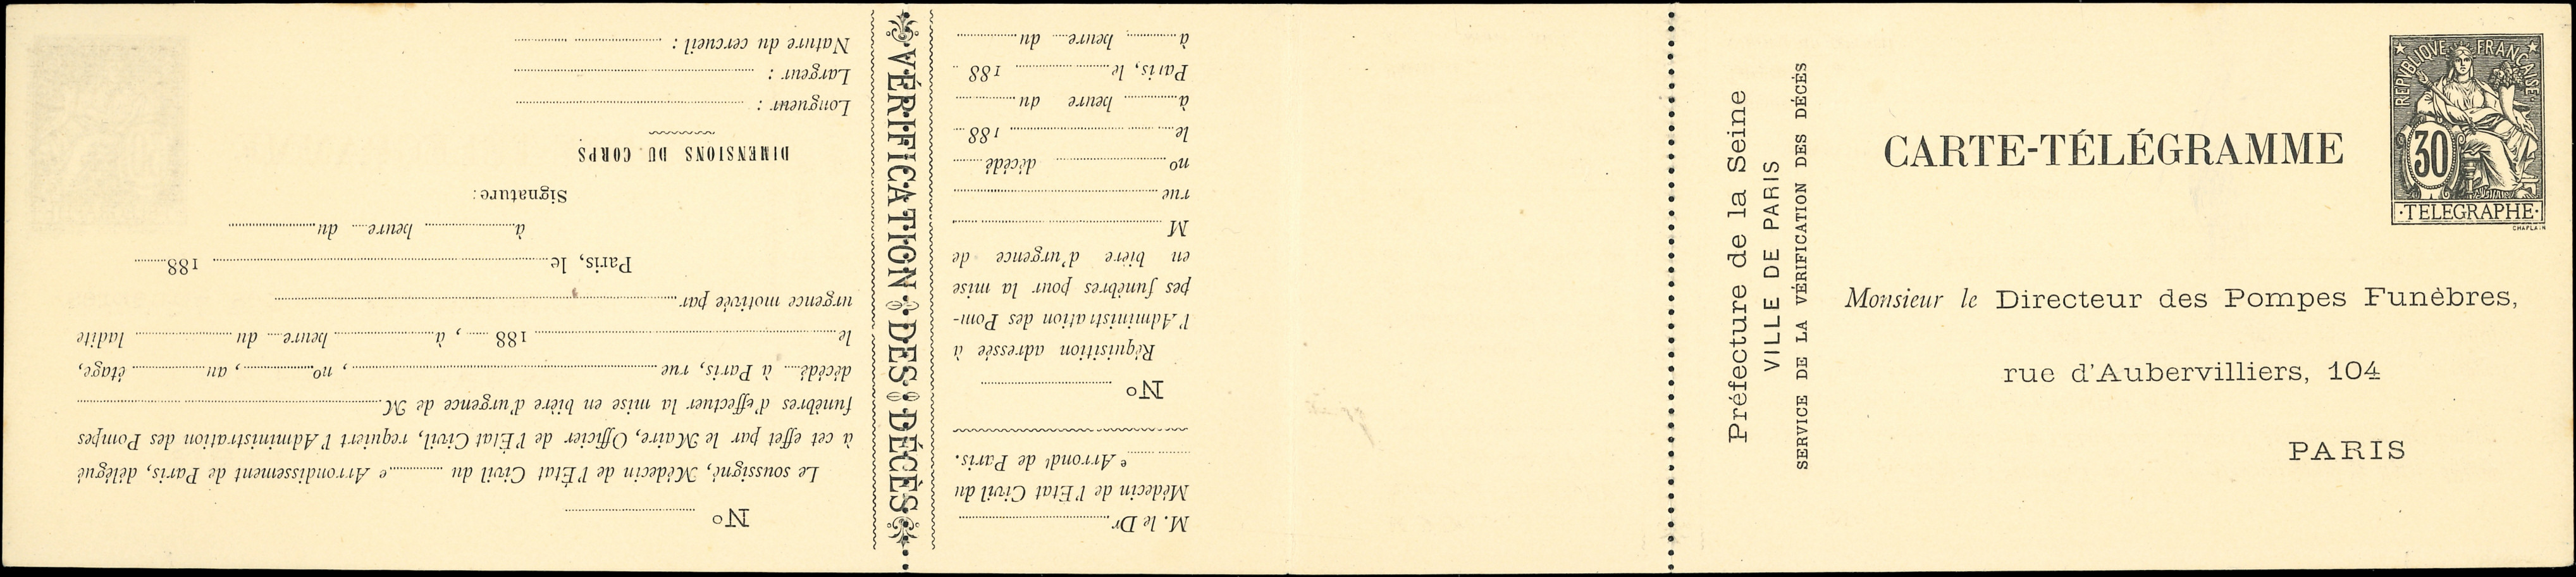 REPVBLIQVE FRANÇAISE
30
TELEGRAPHE
CHAPLAIN
CARTE-TÉLÉGRAMME
Monsieur le Directeur des Pompes Funèbres,
rue d'Aubervilliers, 104
PARIS
Préfecture de la Seine
VILLE DE PARIS
SERVICE DE LA VÉRIFICATION DES DÉCÈS
M. le Dr
Médecin de l'Etat Civil du
e Arrondt de Paris.
No
Réquisition adressée à
l'Administration des Pom-
pes funèbres pour la mise
en bière d'urgence de
M
rue
no décédé
le 188
à heure du
Paris, le 188
à heure du
VÉRIFICATION DES DÉCÈS
No
Le soussigné, Médecin de l'État Civil du e Arrondissement de Paris, délégué
à cet effet par le Maire, Officier de l'État Civil, requiert l'Administration des Pompes
funèbres d'effectuer la mise en bière d'urgence de M.
décédé à Paris, rue , no , au étage,
le 188 , à heure du ladite
urgence motivée par
Paris, le 188
à heure du
Signature :
DIMENSIONS DU CORPS
Longueur :
Largeur :
Nature du cercueil :